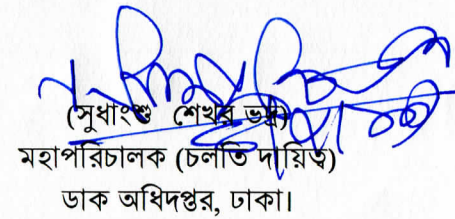 (সুধাংশু শেখর ভদ্র)
মহাপরিচালক (চলতি দায়িত্ব)
ডাক অধিদপ্তর, ঢাকা।